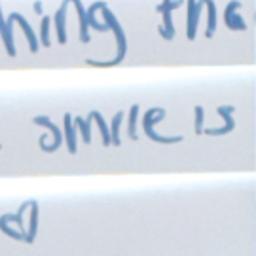 hing tha
smile is
♡